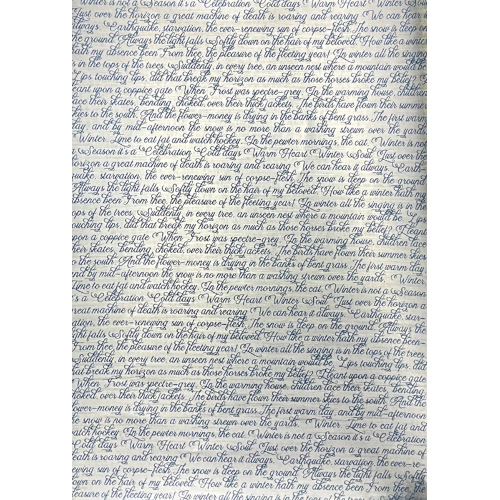 Winter is not a Season it's a Celebration Cold days Warm Heart Winter
Just over the horizon a great machine of death is roaring and rearing We can hear it
always. Earthquake, starvation, the ever-renewing sun of corpse-flesh. The snow is deep on
the ground. Always the light falls Softly down on the hair of my beloved. How like a winter
hath my absence been From thee, the pleasure of the fleeting year! In winter all the singing
is in the tops of the trees. Suddenly, in every tree, an unseen nest where a mountain would be.
Lips touching lips, did that break my horizon as much as those horses broke my belief? I
leant upon a coppice gate When Frost was spectre-grey. In the warming house, children
lace their skates, bending, choked, over their thick jackets. The birds have flown their summer
skies to the south, And the flower-money is drying in the banks of bent grass. The first warm
day, and by mid-afternoon the snow is no more than a washing strewn over the yards.
Winter. Time to eat fat and watch hockey. In the pewter mornings, the cat, Winter is not
a Season it's a Celebration Cold days Warm Heart Winter Soul. Just over the
horizon a great machine of death is roaring and rearing We can hear it always. Earthq-
uake, starvation, the ever-renewing sun of corpse-flesh. The snow is deep on the ground.
Always the light falls Softly down on the hair of my beloved. How like a winter hath my
absence been From thee, the pleasure of the fleeting year! In winter all the singing is in the
tops of the trees. Suddenly, in every tree, an unseen nest where a mountain would be. Lips
touching lips, did that break my horizon as much as those horses broke my belief? I leant
upon a coppice gate When Frost was spectre-grey. In the warming house, children lace
their skates, bending, choked, over their thick jackets. The birds have flown their summer skies
to the south, And the flower-money is drying in the banks of bent grass. The first warm day,
and by mid-afternoon the snow is no more than a washing strewn over the yards. Winter.
Time to eat fat and watch hockey. In the pewter mornings, the cat, Winter is not a Season it's
a Celebration Cold days Warm Heart Winter Soul. Just over the horizon a
great machine of death is roaring and rearing We can hear it always. Earthquake, star-
vation, the ever-renewing sun of corpse-flesh. The snow is deep on the ground. Always the
light falls Softly down on the hair of my beloved. How like a winter hath my absence been
From thee, the pleasure of the fleeting year! In winter all the singing is in the tops of the trees.
Suddenly, in every tree, an unseen nest where a mountain would be. Lips touching lips, did
that break my horizon as much as those horses broke my belief? I leant upon a coppice gate
When Frost was spectre-grey. In the warming house, children lace their skates, bending,
choked, over their thick jackets. The birds have flown their summer skies to the south, And the
flower-money is drying in the banks of bent grass. The first warm day, and by mid-afternoon
the snow is no more than a washing strewn over the yards. Winter. Time to eat fat and
watch hockey. In the pewter mornings, the cat, Winter is not a Season it's a Celebration
Cold days Warm Heart Winter Soul. Just over the horizon a great machine of death
is roaring and rearing We can hear it always. Earthquake, starvation, the ever-ren-
ewing sun of corpse-flesh. The snow is deep on the ground. Always the light falls Softly
down on the hair of my beloved. How like a winter hath my absence been From thee, the
pleasure of the fleeting year! In winter all the singing is in the tops of the trees. Suddenly, in